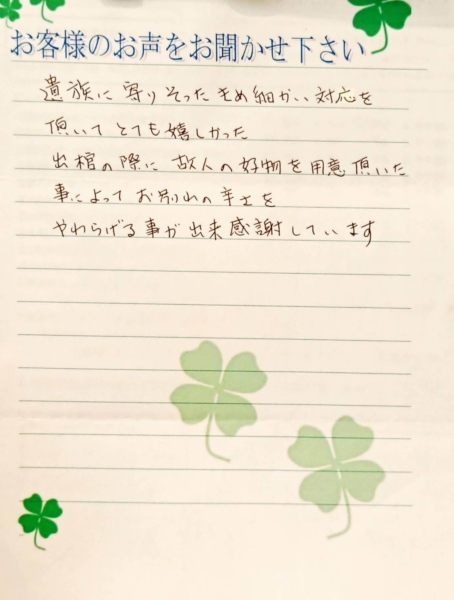 お客様のお声をお聞かせ下さい
遺族に寄りそったきめ細かい対応を
頂いてとても嬉しかった
出棺の際に故人の好物を用意頂いた
事によってお別れの辛さを
やわらげる事が出来感謝しています